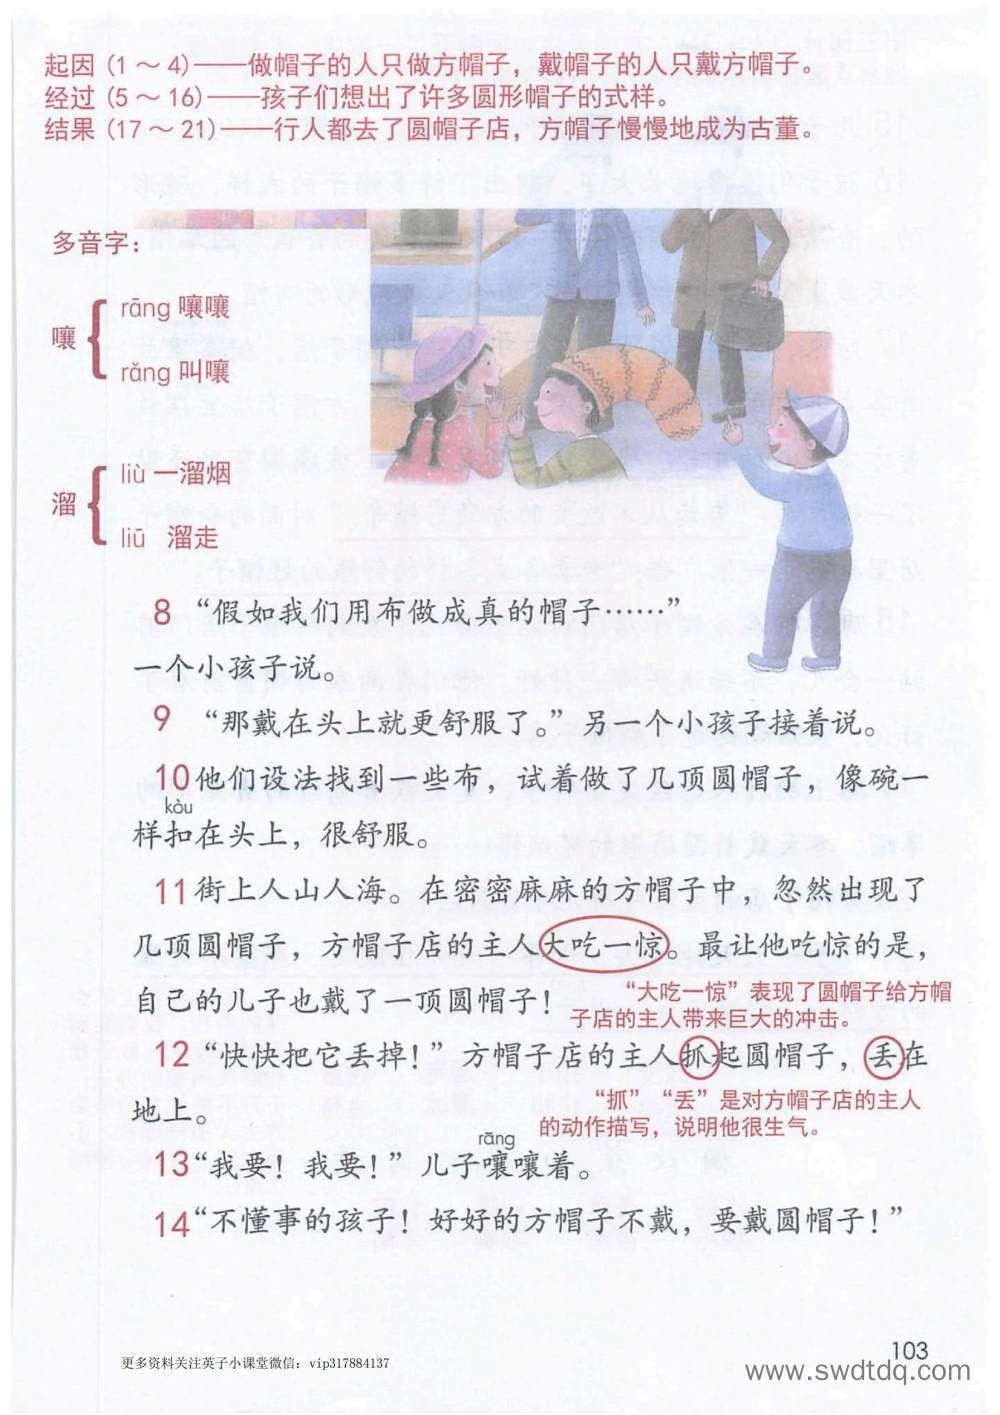 起因（1～4）——做帽子的人只做方帽子，戴帽子的人只戴方帽子。
经过（5～16）——孩子们想出了许多圆形帽子的式样。
结果（17～21）——行人都去了圆帽子店，方帽子慢慢地成为古董。
多音字：
嚷
rāng 嚷嚷
rǎng 叫嚷
溜
liù 一溜烟
liū 溜走
8 “假如我们用布做成真的帽子……”
一个小孩子说。
9 “那戴在头上就更舒服了。”另一个小孩子接着说。
10 他们设法找到一些布，试着做了几顶圆帽子，像碗一
kòu
样扣在头上，很舒服。
11 街上人山人海。在密密麻麻的方帽子中，忽然出现了
几顶圆帽子，方帽子店的主人大吃一惊。最让他吃惊的是，
自己的儿子也戴了一顶圆帽子！
“大吃一惊”表现了圆帽子给方帽
子店的主人带来巨大的冲击。
12 “快快把它丢掉！”方帽子店的主人抓起圆帽子，丢在
地上。
“抓”“丢”是对方帽子店的主人
的动作描写，说明他很生气。
rāng
13 “我要！我要！”儿子嚷嚷着。
14 “不懂事的孩子！好好的方帽子不戴，要戴圆帽子！”
103
更多资料关注英子小课堂微信：vip317884137
www.swdtdq.com